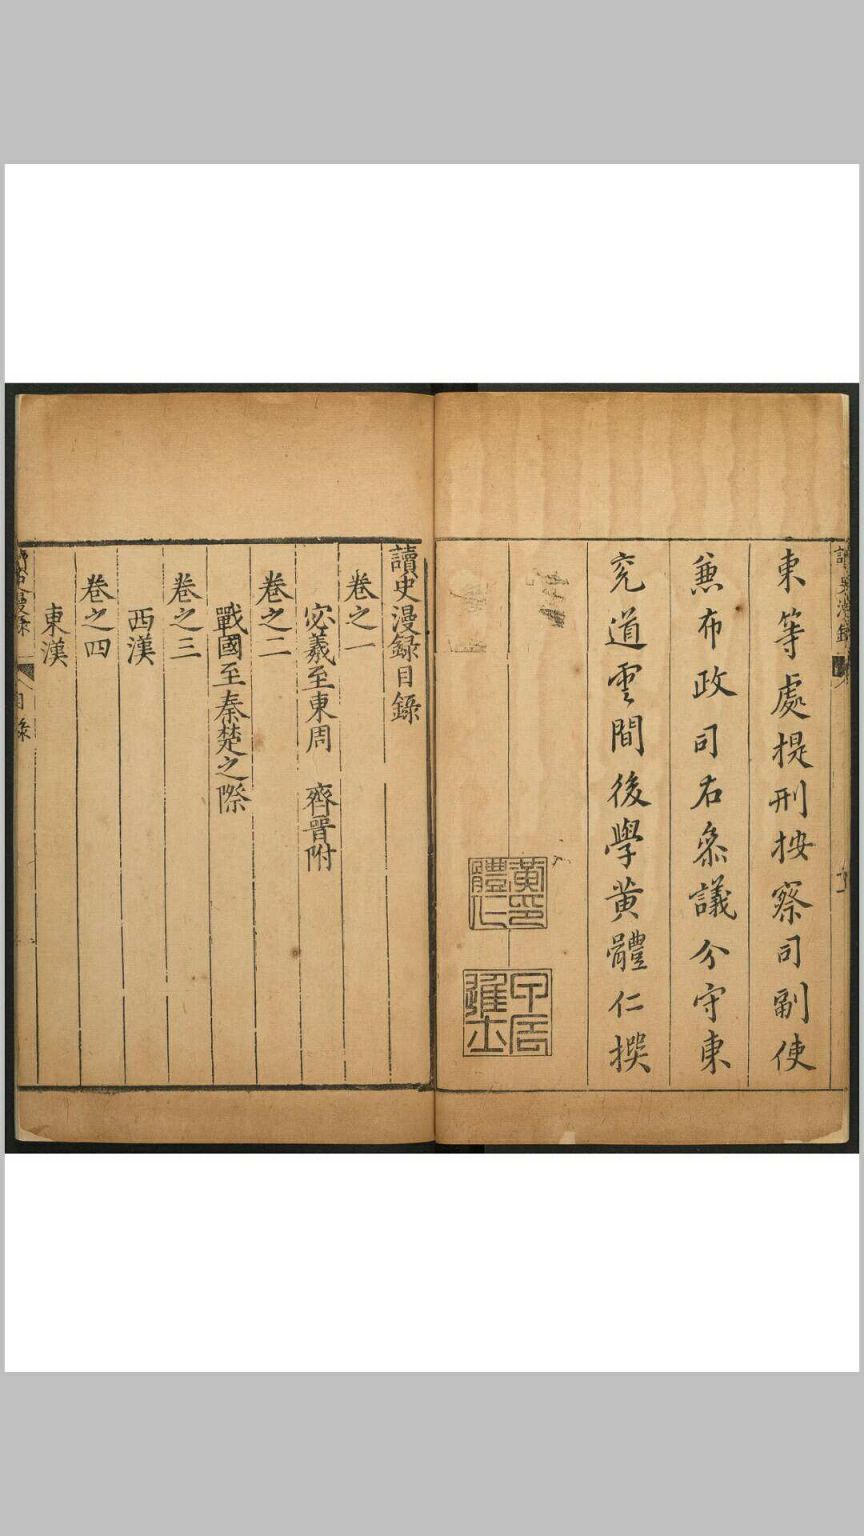 東等處提刑按察司副使
兼布政司右叅議分守東
兖道雲間後學黄體仁撰
黄印體仁
甲辰進士
讀史漫録目錄
卷之一
宓羲至東周　齊晉附
卷之二
戰國至秦楚之際
卷之三
西漢
卷之四
東漢